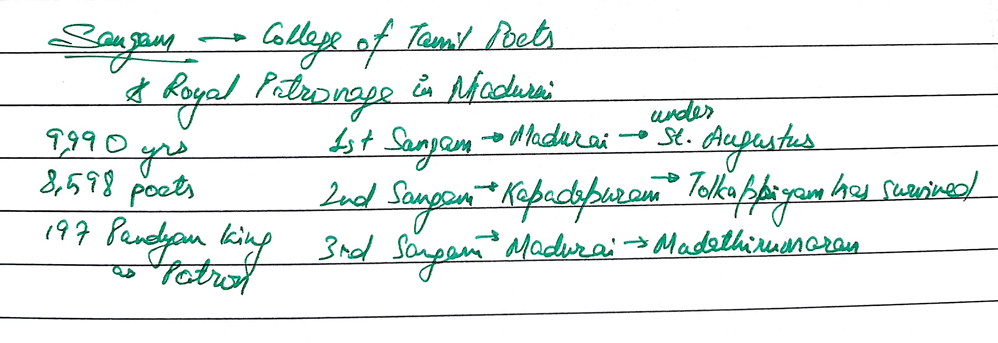 Sangam → College of Tamil Poets
* Royal Patronage in Madurai
9,990 yrs
8,598 poets
197 Pandyan king
as Patron
1st Sangam → Madurai → under St. Augustus
2nd Sangam → Kapadapuram → Tolkappiyam has survived
3rd Sangam → Madurai → Mudathirumaran